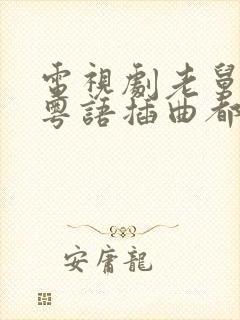 電視劇老舅
粵語插曲都
安庸龍